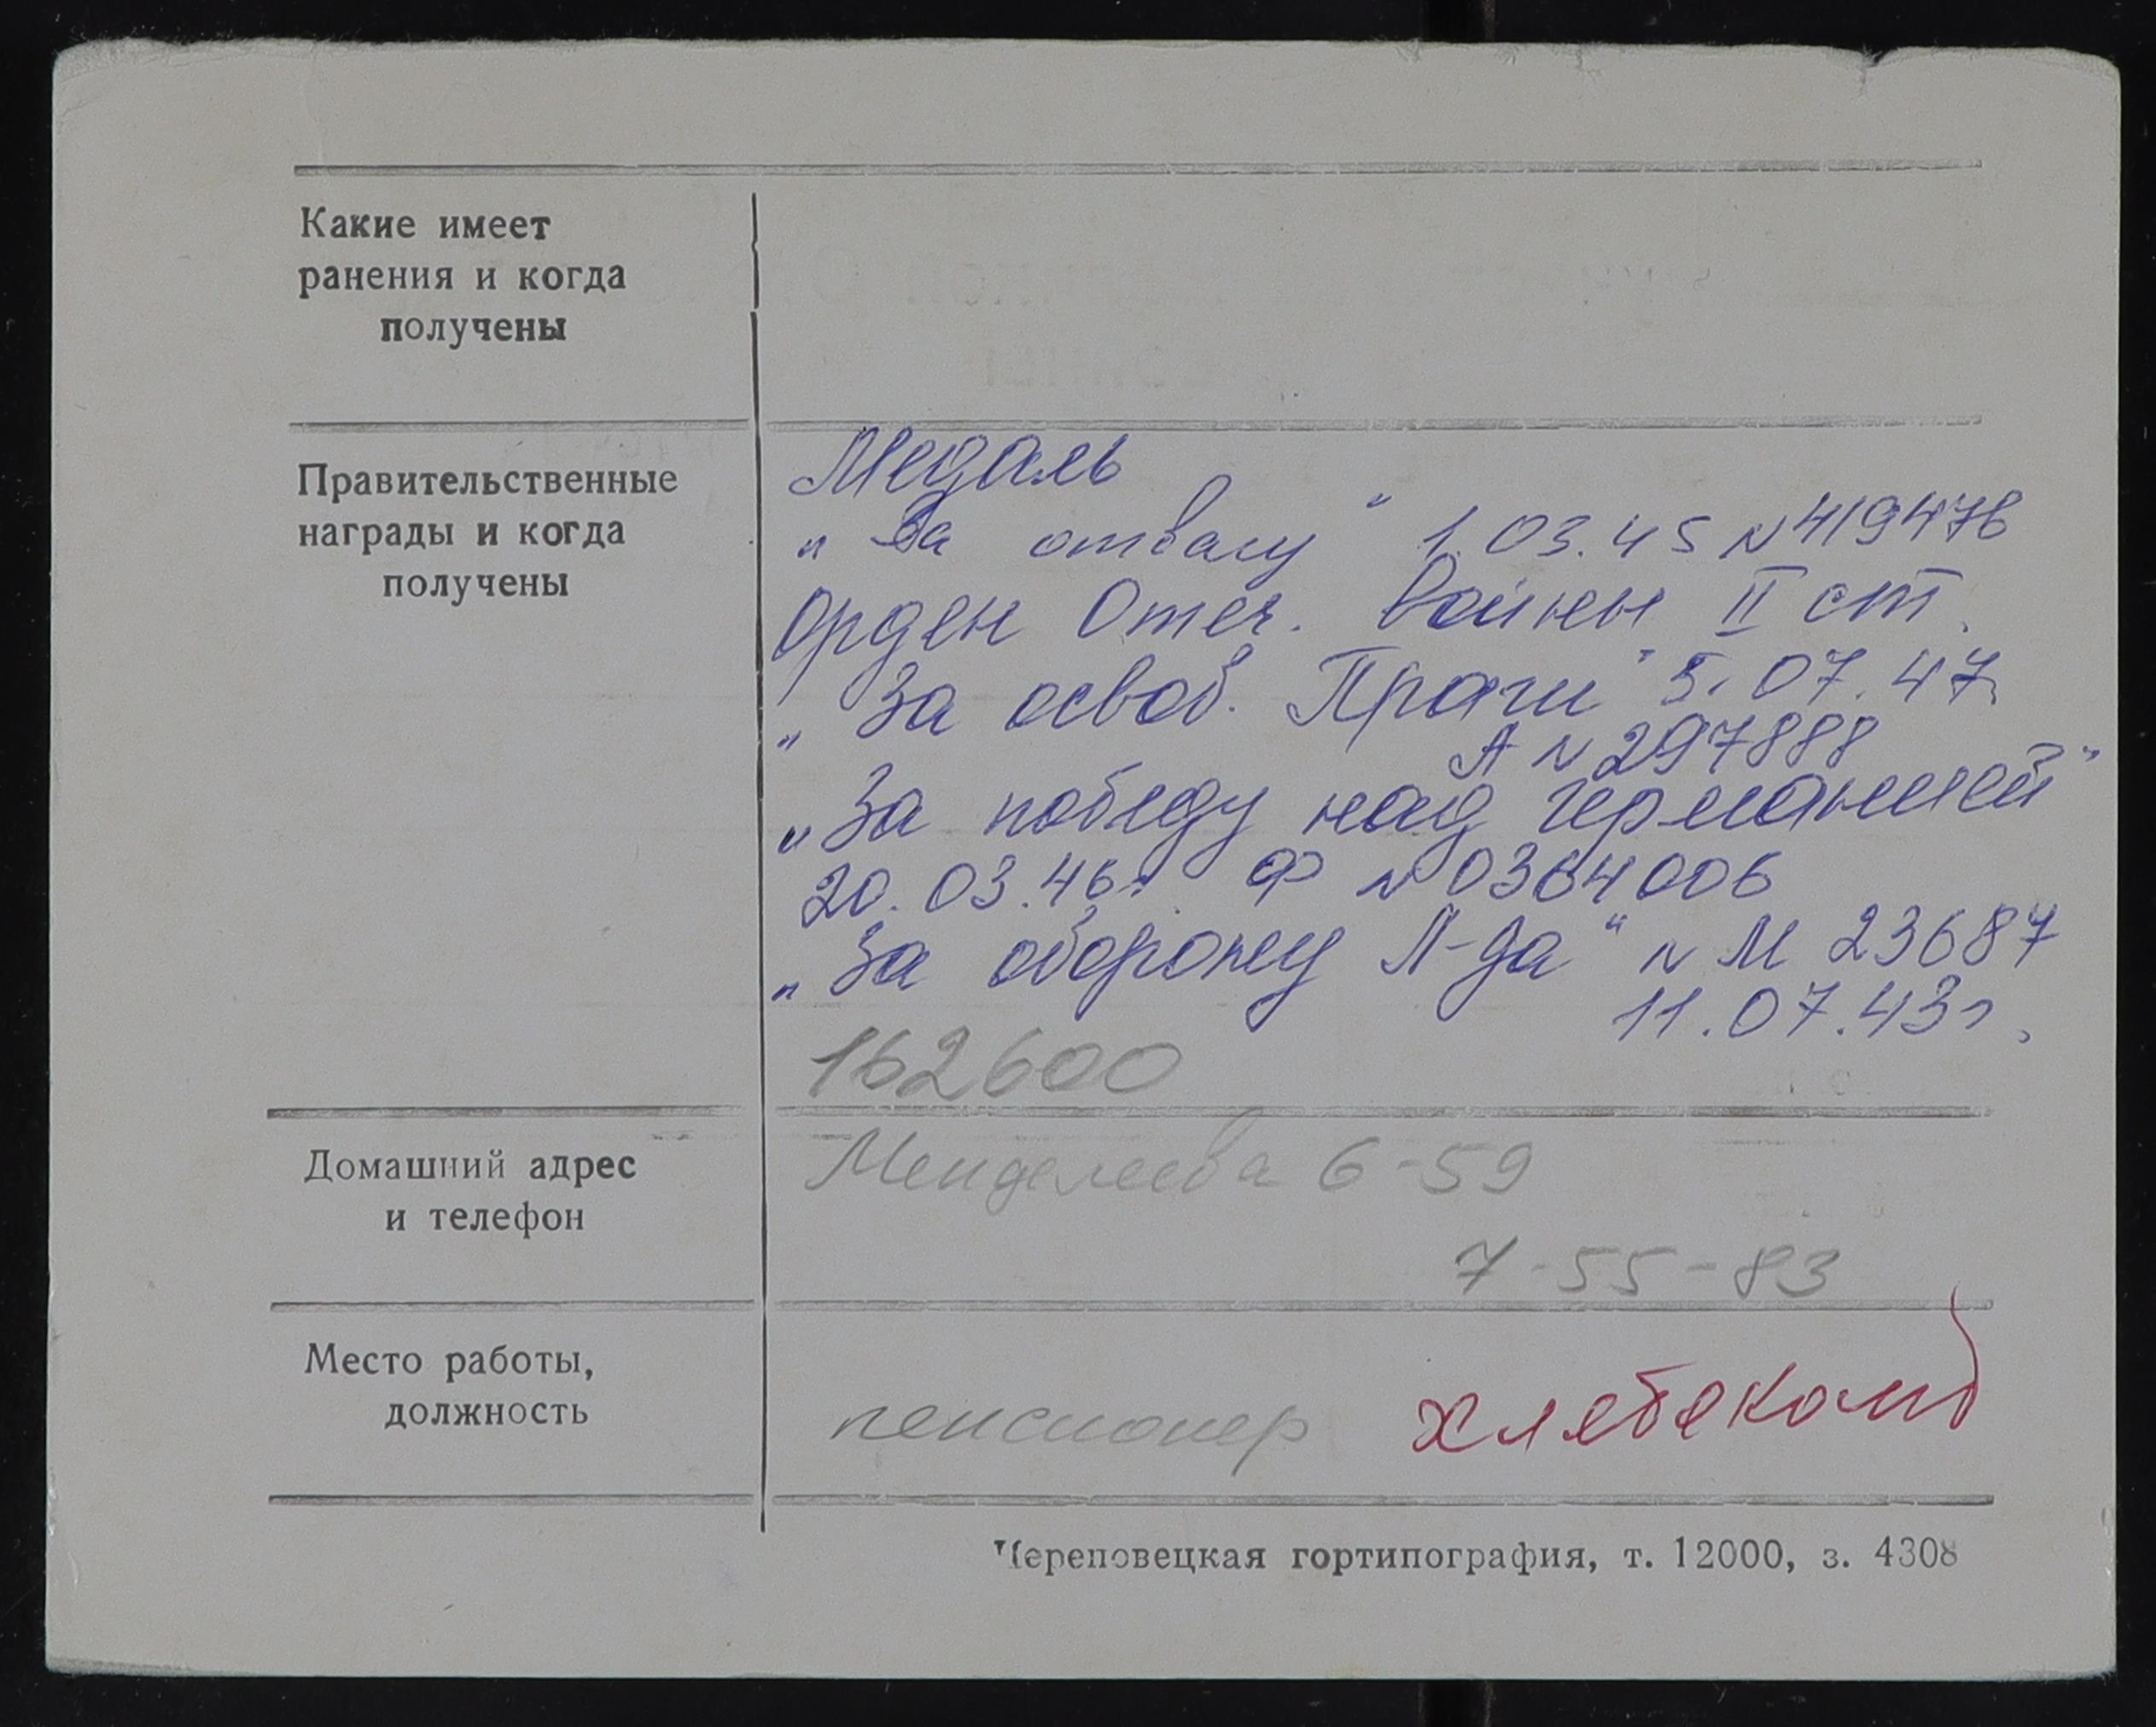 Какие имеет
ранения и когда
получены
Правительственные
награды и когда
получены
Медаль
„За отвагу" 1.03.45 N 419476
Орден Отеч. Войны II ст.
„За освоб. Праги" 5.07.47
А N 297888
„За победу над Германией"
20.03.46г Ф N 0364006
„За оборону Л-да" N М 23687
11.07.43г.
162600
Домашний адрес
и телефон
Менделеева 6-59
7-55-83
Место работы,
должность
пенсионер хлебокомб
Череповецкая гортипография, т. 12000, з. 4308